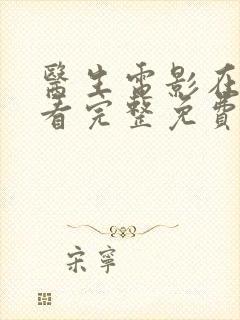 醫生電影在
看完整免費
宋寧